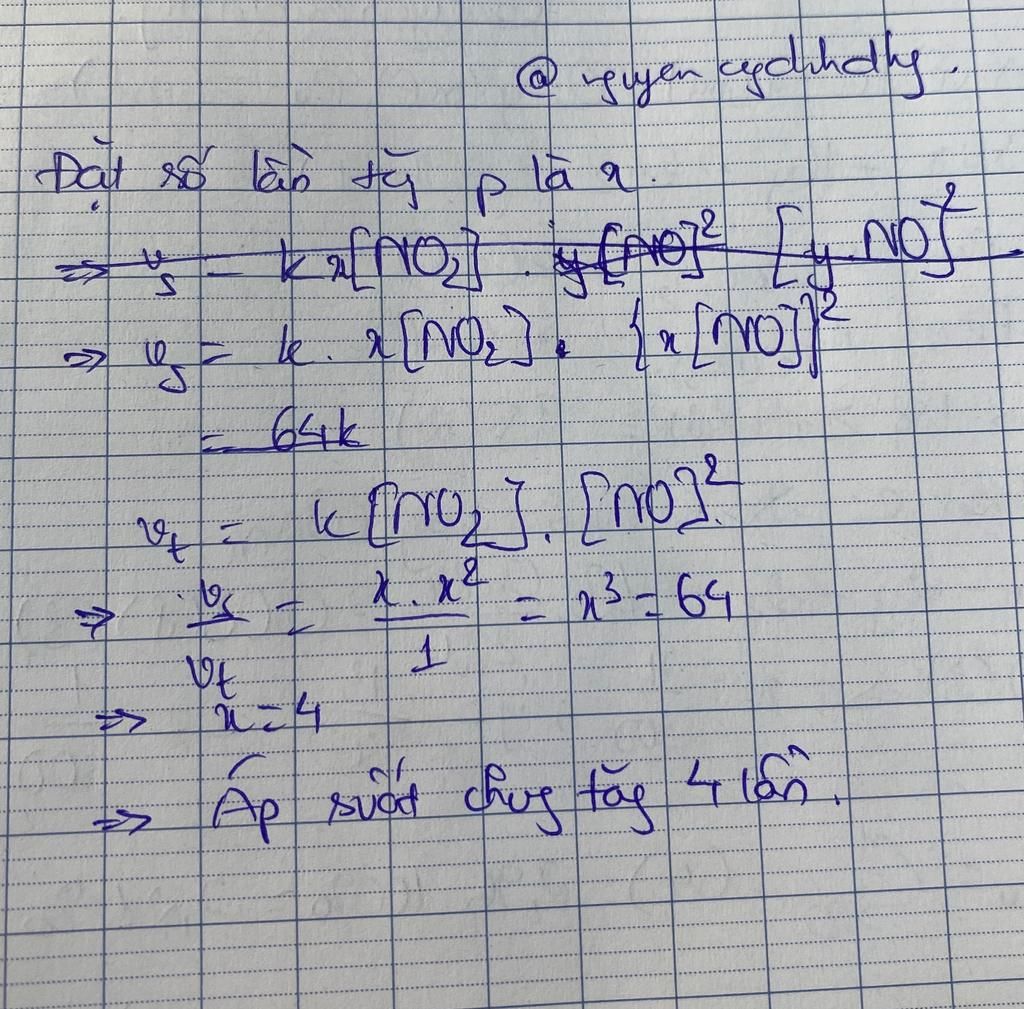 @ nguyen
Đặt số lần tăg p là x.
⇒ vs = k x[NO2] . y[NO]² [y.NO]²
⇒ vs = k. x[NO2]. {x[NO]}²
= 64k
vt = k[NO2]. [NO]².
⇒ vs/vt = x.x²/1 = x³ = 64
⇒ x = 4
⇒ Áp suất chug tăg 4 lần.